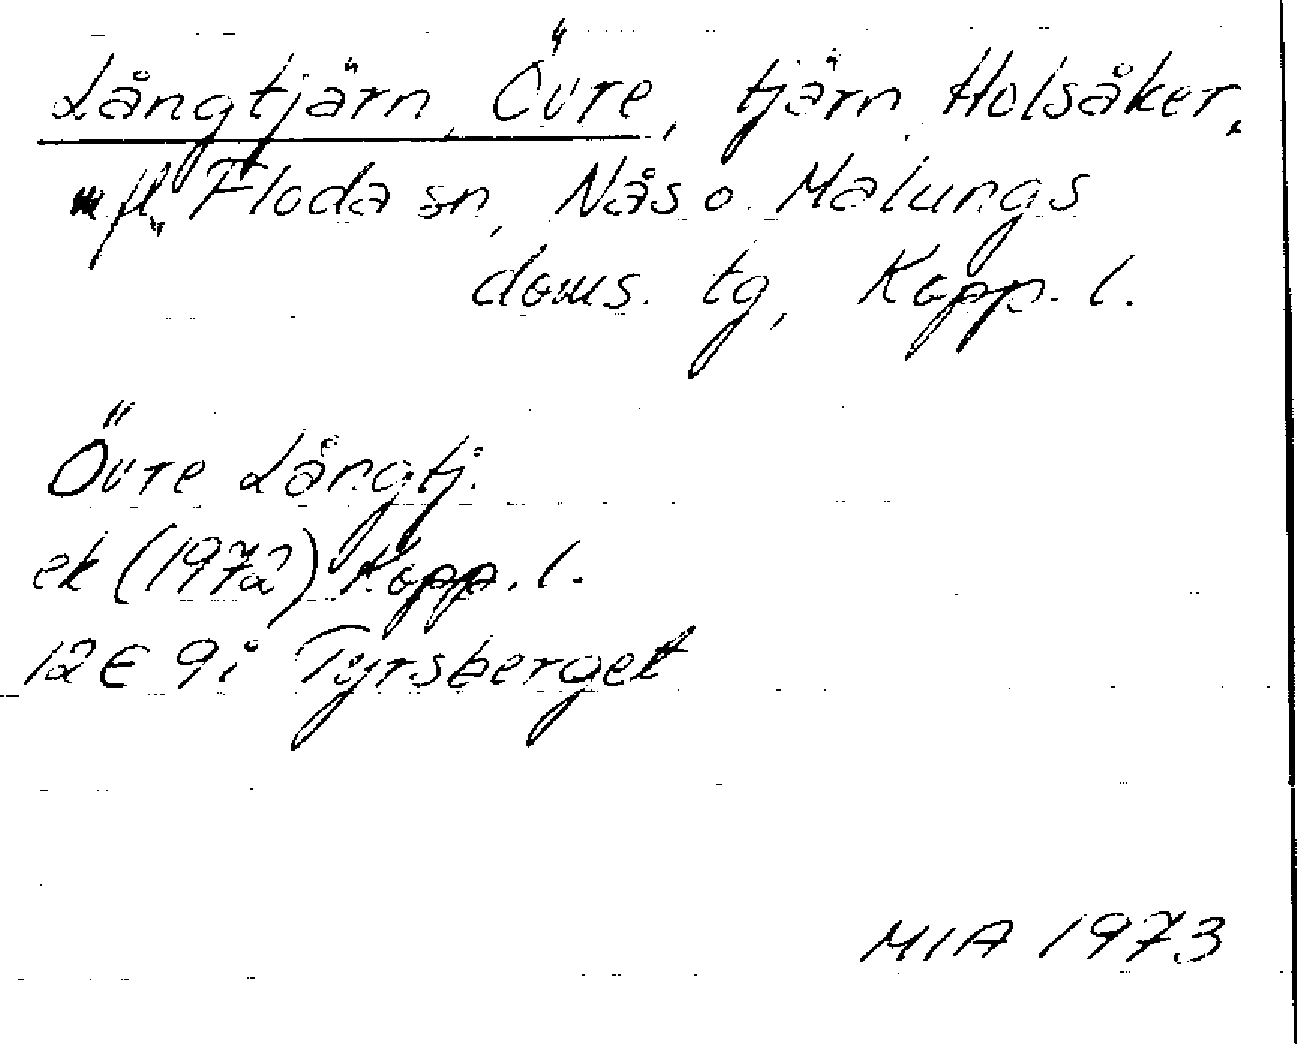 Långtjärn, Övre, tjärn, Holsåker,
m fl., Floda sn, Nås o. Malungs
doms. tg, Kopp. l.
Övre Långtj.
ek (1972) Kopp. l.
12E 9i Tyrsberget
MIA 1973